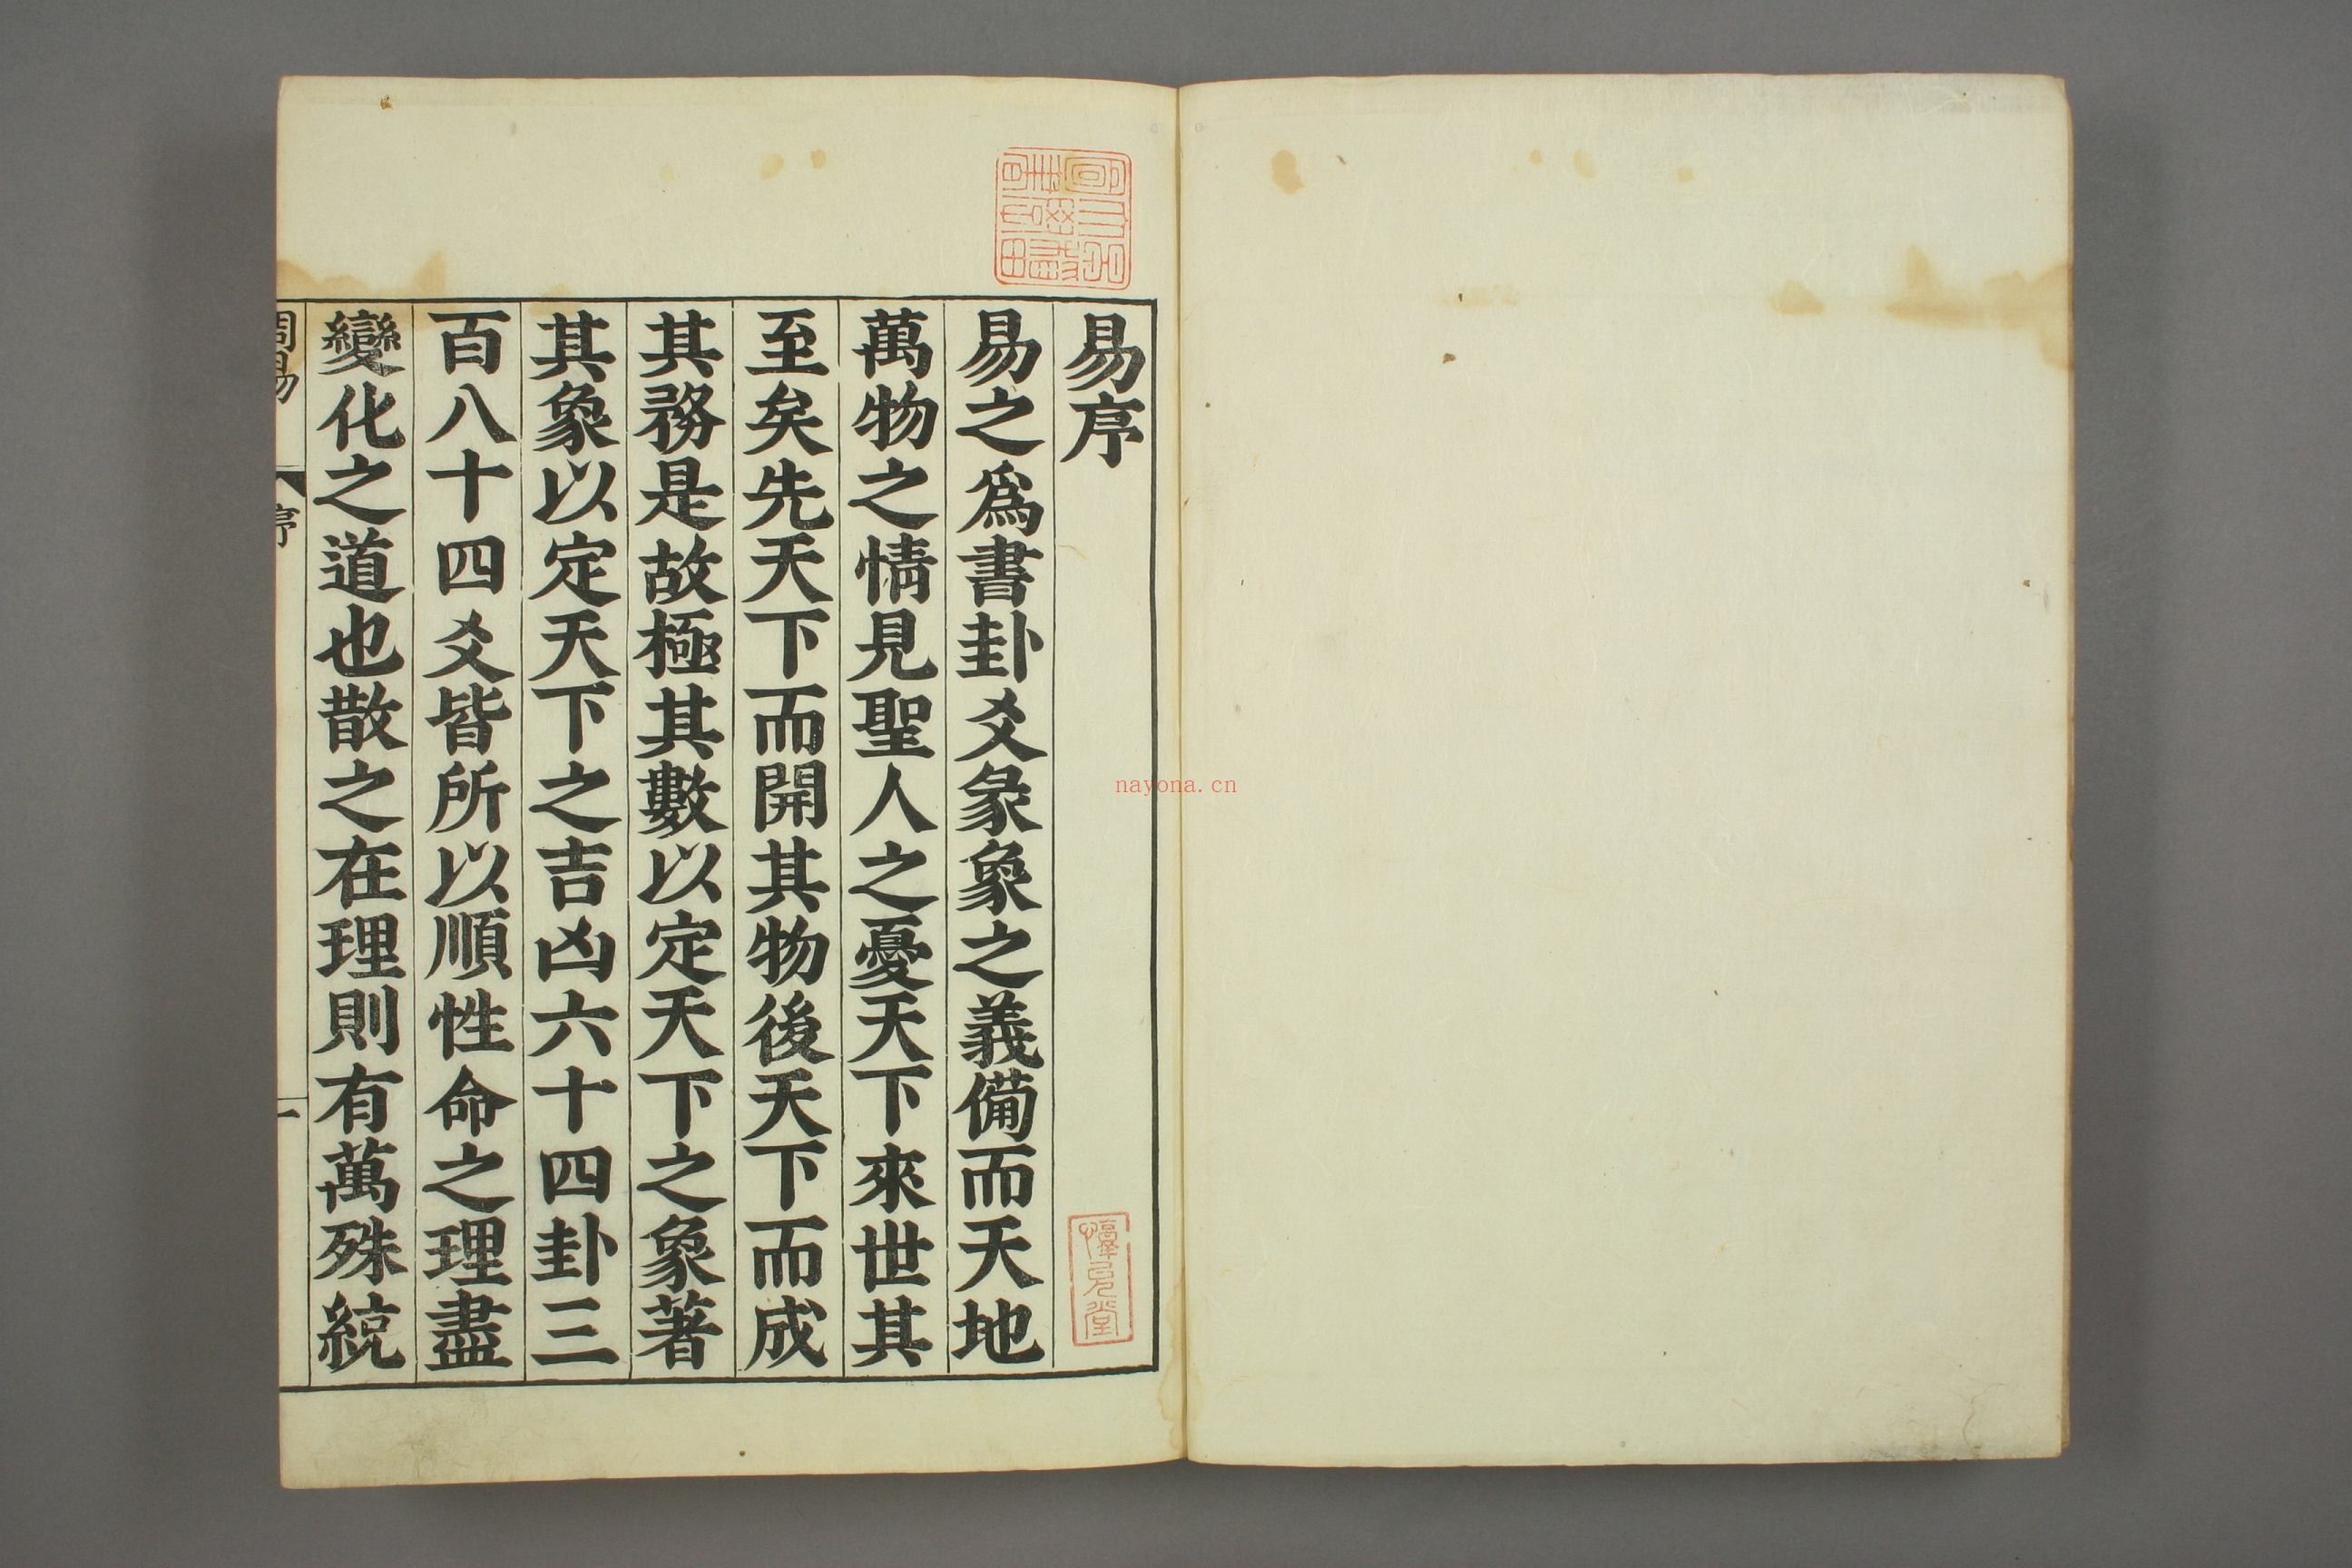 易序
易之爲書卦爻彖象之義備而天地
萬物之情見聖人之憂天下來世其
至矣先天下而開其物後天下而成
其務是故極其數以定天下之象著
其象以定天下之吉凶六十四卦三
百八十四爻皆所以順性命之理盡
變化之道也散之在理則有萬殊統
周易
序
一
nayona.cn